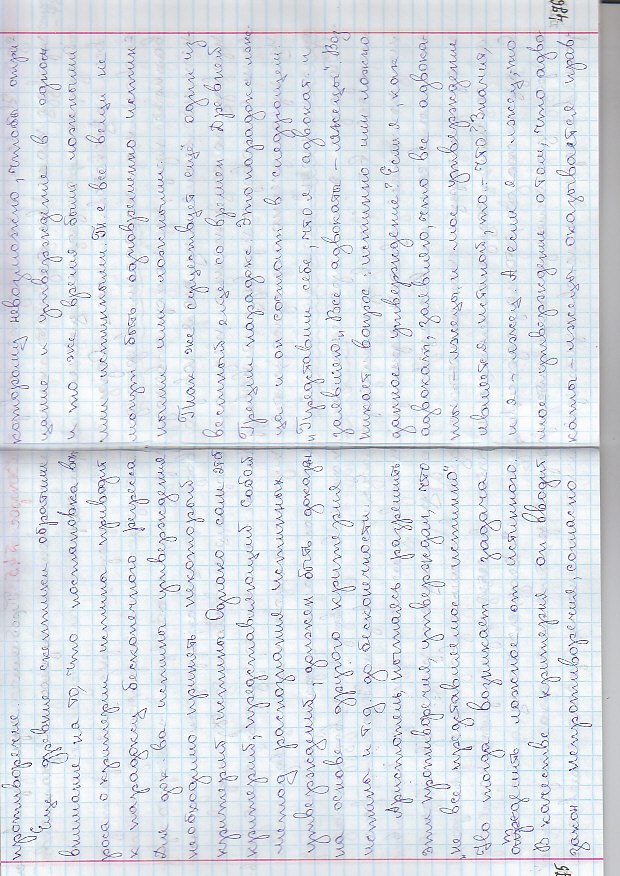 противоречие.
Еще древние скептики обратили
внимание на то, что постановка воп-
роса о критерии истины приводит
к парадоксу бесконечного регресса
Для док-ва истины утверждения
необходимо принять некоторый
критерий истины. Однако сам этот
критерий, представляющий собой
метод распознания истинных
утверждений, должен быть доказан
на основе другого критерия
истины и т.д. до бесконечности.
Аристотель, пытаясь разрешить
эти противоречия, утверждал, что
"не все представляемое истинно".
Но тогда возникает задача
отделить ложное от истинного.
В качестве критерия он вводит
закон непротиворечия, согласно
75
которому невозможно, чтобы отри-
цание и утверждение в одном
и то же время были ложными
или истинными. Так же все вещи не
могут быть одновременно истин-
ными или ложными.
Так же существует ещё один из-
вестный еще со времен Древней
Греции парадокс. Это парадокс лже-
ца и он состоит в следующем:
"Представим себе, что я адвокат и
заявляю: "Все адвокаты – лжецы". Воз-
никает вопрос: истинно или ложно
данное утверждение? Если я, как
адвокат, заявляю, что все адвока-
ты – лжецы и мое утверждение
является истиной, то – что? Значит,
и я – лжец. А если я – лжец, то
мое утверждение о том, что адво-
каты – лжецы оказывается прав-
476